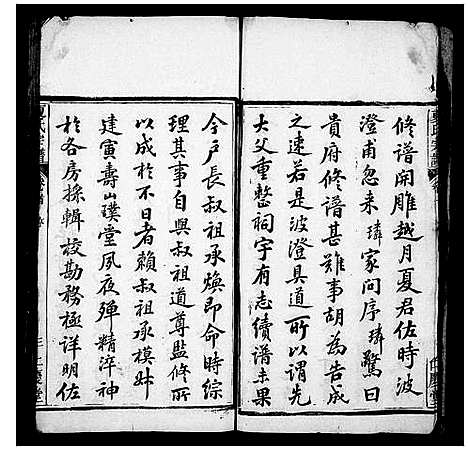 修譜開雕越月夏君佐時波
澄甫忽来璘家问序璘驚曰
貴府修譜甚難事胡為告成
之速若是波澄具道所以謂先
大父重整祠宇有志續譜未果
今戶長叔祖承煥即命時綜
理其事自與叔祖道尊監修所
以成於不日者賴叔祖承模姊
建寅壽山璞堂夙夜殫精淬神
於各房採輯校勘務極詳明佐
夏氏宗譜